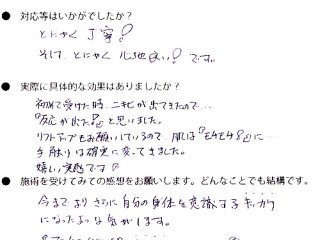 ● 対応等はいかがでしたか？
とにかく 丁寧！
そして、とにかく 心地良い！です。
● 実際に具体的な効果はありましたか？
初めて受けた時、ニキビが出てきたので…
『反応が出た!!』と思いました。
リフトアップもお願いしているので、肌は『モチモチ』に…
手触りは確実に変ってきました。
嬉しい実感です
● 施術を受けてみての感想をお願いします。どんなことでも結構です。
今まで より さらに 自分の 身体を 意識する キッカケ
になったような 気がします。